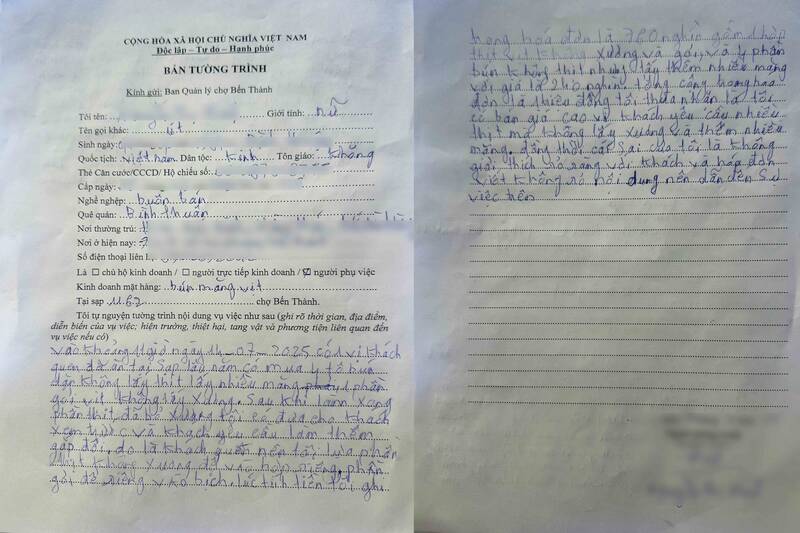 CỘNG HÒA XÃ HỘI CHỦ NGHĨA VIỆT NAM
Độc lập – Tự do – Hạnh phúc
BẢN TƯỜNG TRÌNH
Kính gửi: Ban Quản lý chợ Bến Thành
Tôi tên: Giới tính: nữ
Tên gọi khác: út
Sinh ngày:
Quốc tịch: việt nam Dân tộc: kinh Tôn giáo: không
Thẻ Căn cước/CCCD/ Hộ chiếu số:
Cấp ngày:
Nghề nghiệp: buôn bán
Quê quán: Bình thuận
Nơi thường trú:
Nơi ở hiện nay:
Số điện thoại liên
Là ☐ chủ hộ kinh doanh / ☐ người trực tiếp kinh doanh / ☑ người phụ việc
Kinh doanh mặt hàng: bún măng vịt
Tại sạp 1162 chợ Bến Thành.
Tôi tự nguyện tường trình nội dung vụ việc như sau (ghi rõ thời gian, địa điểm,
diễn biến của vụ việc; hiện trường, thiệt hại, tang vật và phương tiện liên quan đến
vụ việc nếu có)
vào khoảng 11 giờ ngày 14-07-2025 có 1 vị khách
quen đã ăn tại sạp lâu năm có mua 4 tô bún
dặn không lấy thịt lấy nhiều măng 1 phần
gỏi vịt không lấy xương. Sau khi làm xong
phần thịt đã bỏ xương tôi có đưa cho khách
xem trước và khách yêu cầu làm thêm
gấp đôi, do là khách quen nên tôi lựa phần
thịt không xương để vào hộp riêng, phần
gỏi để riêng vào bịch. lúc tính tiền tôi ghi
trong hoá đơn là 760 nghìn gồm 1 hộp
thịt vịt không xương và gỏi, và 4 phần
bún không thịt nhưng lấy thêm nhiều măng
với giá là 240 nghìn. tổng cộng trong hoá
đơn là 1 triệu đồng tôi thừa nhận là tôi
có bán giá cao vì khách yêu cầu nhiều
thịt mà không lấy xương và thêm nhiều
măng. đồng thời cái sai của tôi là không
giải thích rõ ràng với khách và hoá đơn
viết không rõ nội dung nên dẫn đến sự
việc trên